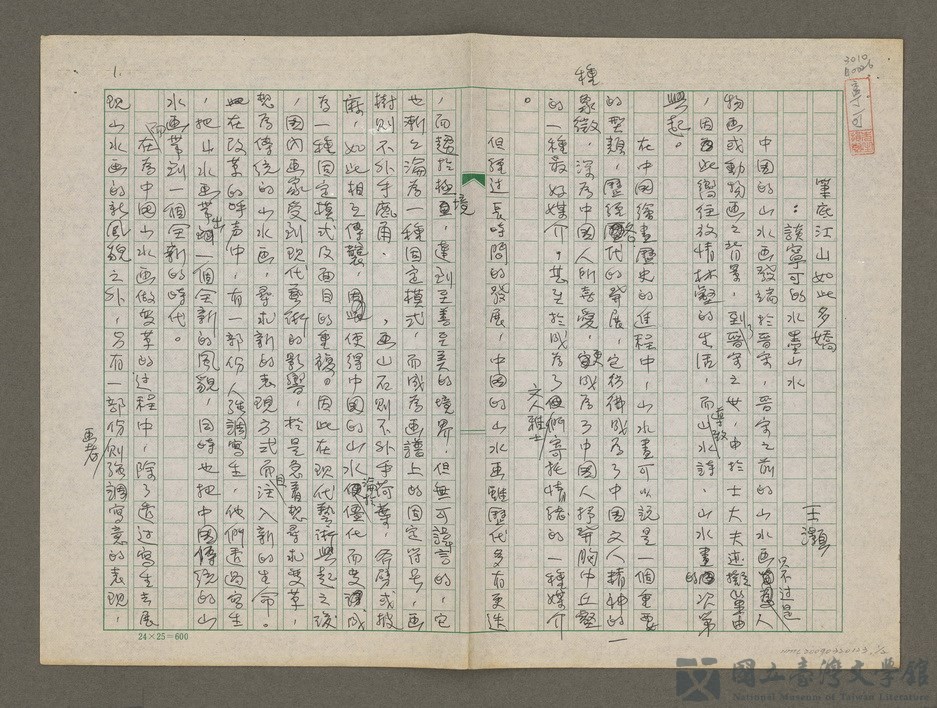 筆底江山如此多嬌
：談寧可的水墨山水
王灝
中國的山水画發端於晉宋，晉宋之前的山水画只不过是人
物画或動物画之背景，到了晉宋之世，由於士大夫
，因此嚮往放情林壑的生活，而導致山水詩、山水畫的次第
興起。
在中國繪畫歷史的進程中，山水畫可以說是一個重要
的型類，歷經各代的發展，它彷彿成為了中國文人精神的一
種
象徵，深為中國人所喜愛，更成為了中國人抒發胸中丘壑
的一種最好媒介，甚至於成為了文人雅士們寄托情緒的一種媒介
。
但經过長時間的發展，中國的山水画雖歷代多有更迭
，而臻於極境，達到至善至美的境界，但無可諱言的，它
也漸之淪為一種固定模式，而成為画譜上的固定符号，画
樹則不外乎鹿角、，画山石則不外乎荷葉、斧劈或披
麻，如此相互傳襲，使得中国的山水淪於僵化而变成
為一種固定模式及面目的重複。因此在現代藝術興起之後
，國內画家受到現代藝術的影響，於是急着想尋求变革，
想為傳統的山水画，尋求新的表現方式而注入新的生命。
在改革的呼声中，有一部份人強調寫生，他們透過寫生
，把山水画帶出一個全新的風貌，同時也把中國傳統的山
水画帶到一個全新的時代。
而在為中国山水画做变革的过程中，除了透过寫生去展
現山水画的新風貌之外，另有一部份画者則強調寫意的表現，
1.
24×25=600
國立臺灣文學館
National Museum of Taiwan Literature